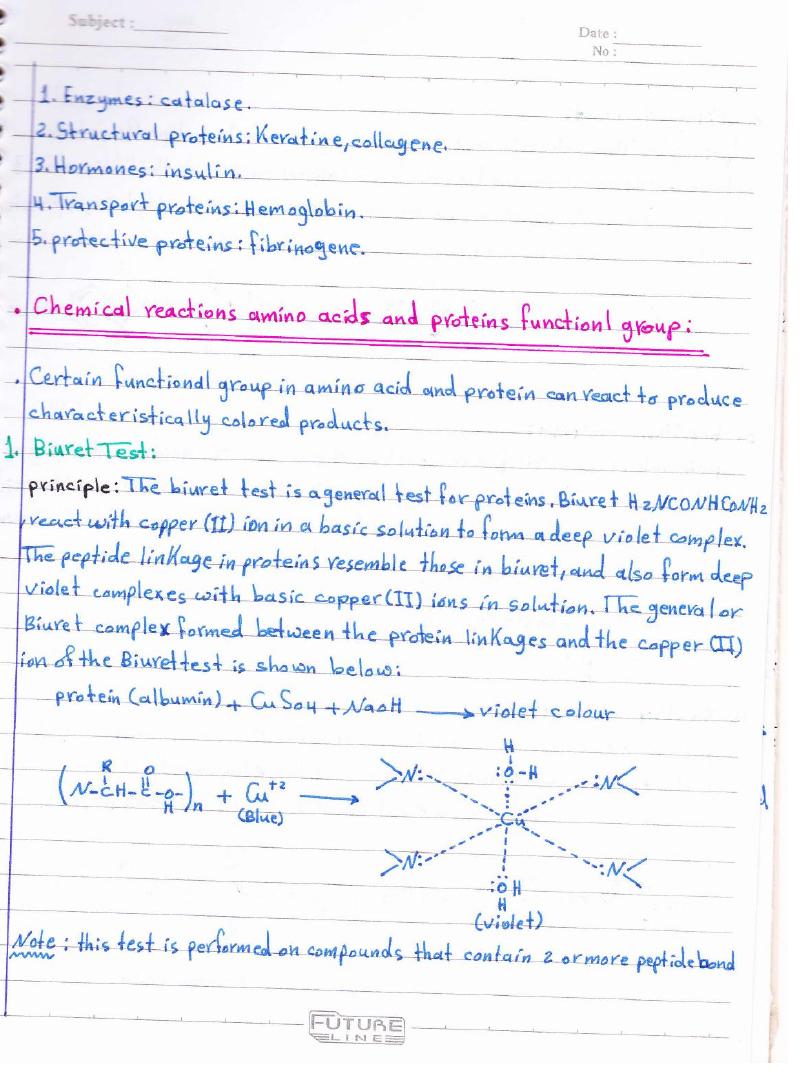 Subject :
Date :
No :
1. Enzymes: catalase.
2. Structural proteins: Keratine, collagene.
3. Hormones: insulin.
4. Transport proteins: Hemoglobin.
5. protective proteins: fibrinogene.
. Chemical reactions amino acids and proteins functionl group:
. Certain functional group in amino acid and protein can react to produce
characteristically colored products.
1. Biuret Test:
principle: The biuret test is a general test for proteins. Biuret H2NCONHCONH2
react with copper (II) ion in a basic solution to form a deep violet complex.
The peptide linkage in proteins resemble those in biuret, and also form deep
violet complexes with basic copper (II) ions in solution. The general or
Biuret complex formed between the protein linkages and the copper (II)
ion of the Biuret test is shown below:
protein (albumin) + CuSo4 + NaoH ⟶ violet colour
R O
(N-CH-C-O-)n + Cu+2 ⟶
H
(Blue)
H
:O-H
N: :N
Cu
N: :N
:OH
H
(violet)
Note: this test is performed on compounds that contain 2 or more peptide bond
FUTURE
LINE